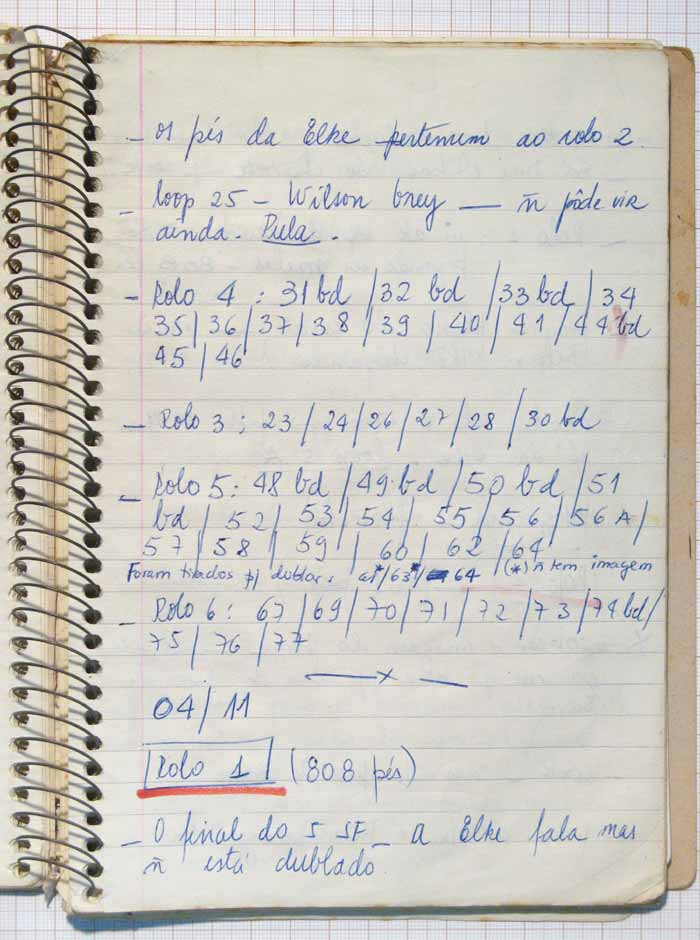 _ os pés da Elke pertencem ao rolo 2.
_ loop 25 - Wilson Grey __ ñ pôde vir
ainda. Pula.
- Rolo 4 : 31 bd / 32 bd / 33 bd / 34
35 / 36 / 37 / 38 / 39 / 40 / 41 / 44 bd
45 / 46
- Rolo 3 ; 23 / 24 / 26 / 27 / 28 / 30 bd
_ Rolo 5 : 48 bd / 49 bd / 50 bd / 51
bd / 52 / 53 / 54 / 55 / 56 / 56 A /
57 / 58 / 59 / 60 / 62 / 64
Foram tirados p/ doblar: 61* / 63* / 64 (*) ñ tem imagem
_ Rolo 6 : 67 / 69 / 70 / 71 / 72 / 73 / 74 bd /
75 / 76 / 77
___x __
04 / 11
Rolo 1 (808 pés)
_ O final do 5 SF _ a Elke fala mas
ñ está dublado.